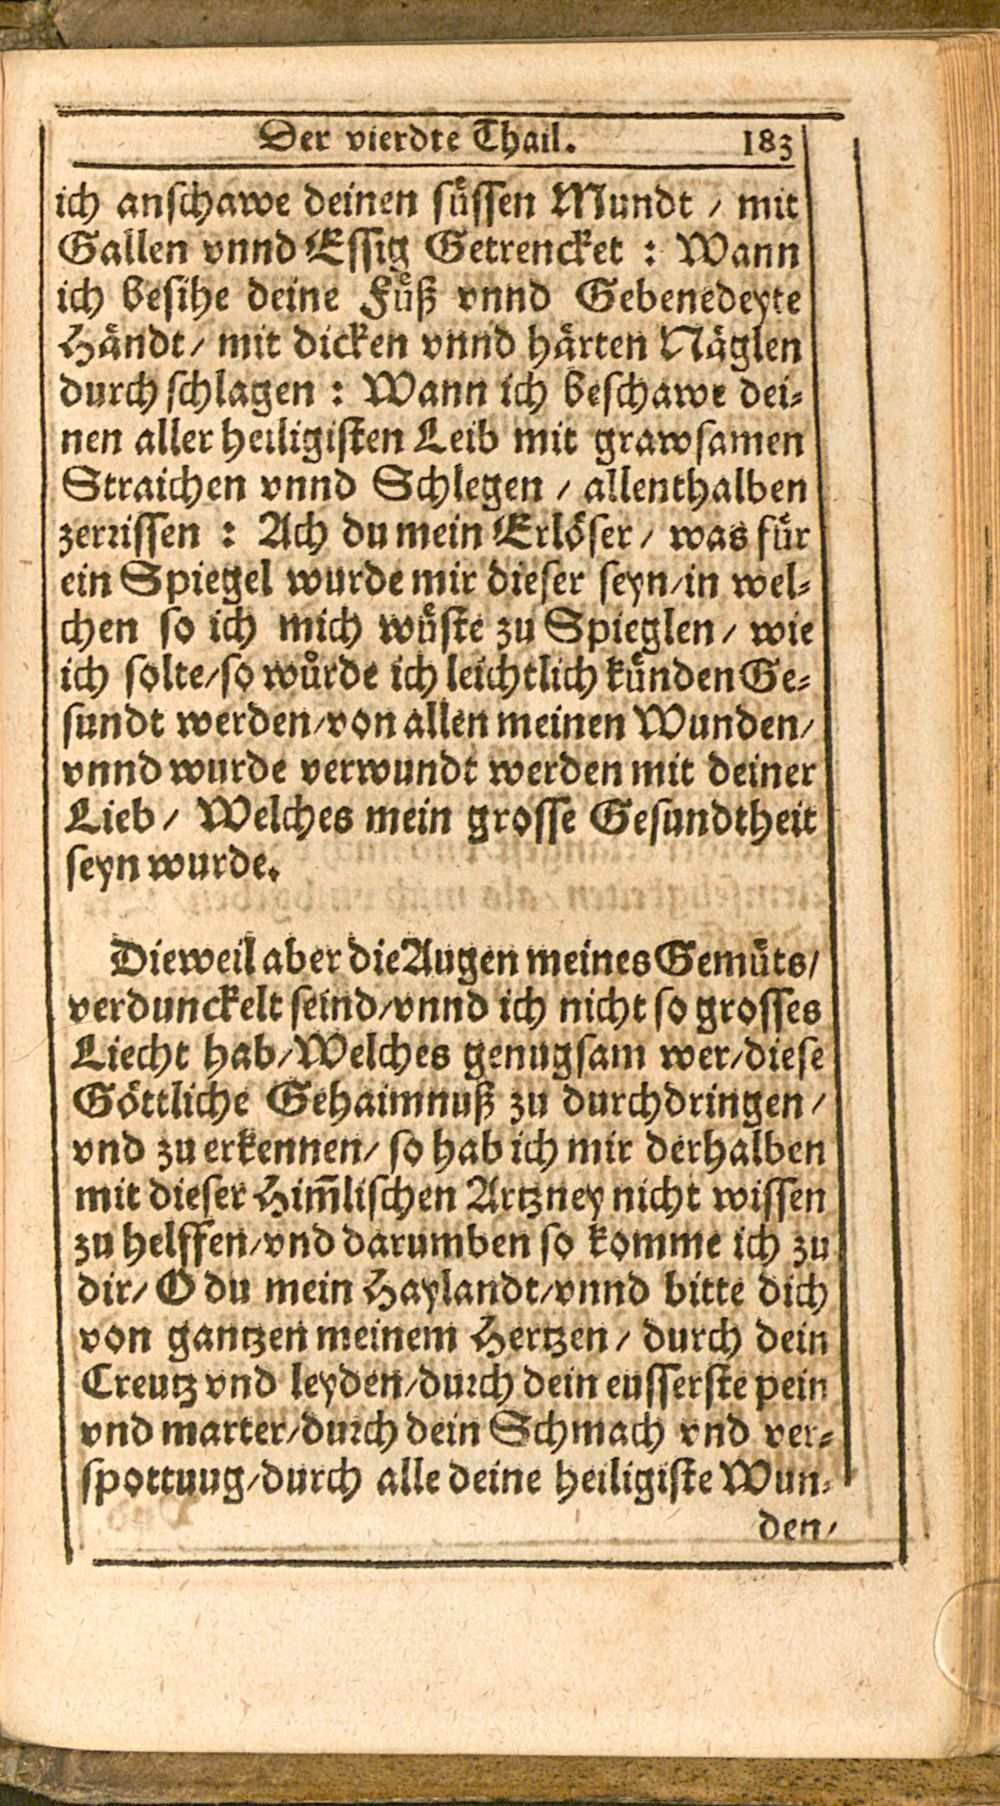 Der vierdte Thail. 183
ich anschawe deinen süssen Mundt / mit
Gallen vnnd Essig Getrencket : Wann
ich besihe deine Füß vnnd Gebenedeyte
Händt/ mit dicken vnnd härten Näglen
durch schlagen : Wann ich beschawe dei-
nen aller heiligisten Leib mit grawsamen
Straichen vnnd Schlegen / allenthalben
zerrissen : Ach du mein Erlöser/ was für
ein Spiegel wurde mir dieser seyn/in wel-
chen so ich mich wüste zu Spieglen/ wie
ich solte/so wůrde ich leichtlich künden Ge-
sundt werden/von allen meinen Wunden/
vnnd wurde verwundt werden mit deiner
Lieb/ Welches mein grosse Gesundtheit
seyn wurde.
Dieweil aber die Augen meines Gemüts/
verdunckelt seind/vnnd ich nicht so grosses
Liecht hab/Welches genugsam wer/diese
Göttliche Gehaimnuß zu durchdringen/
vnd zu erkennen/ so hab ich mir derhalben
mit dieser Him̃lischen Artzney nicht wissen
zu helffen/vnd darumben so komme ich zu
dir/ O du mein Haylandt/vnnd bitte dich
von gantzen meinem Hertzen/ durch dein
Creutz vnd leyden/durch dein eusserste pein
vnd marter/durch dein Schmach vnd ver-
spottuug/durch alle deine heiligiste Wun-
den/